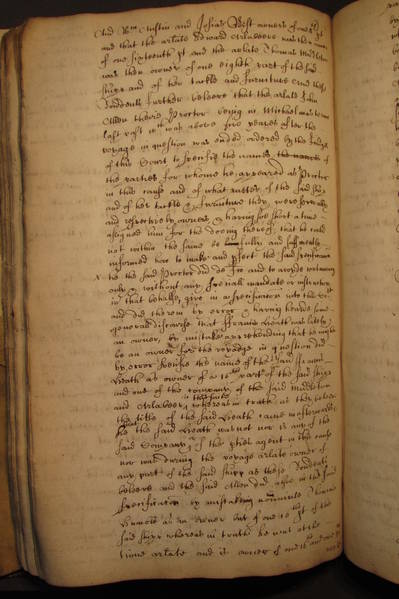 And Wm Austin and Josias West owners of one 16th pt
and that the arlate Edward Arlabeere was then owner
of one sixteenth pt and the arlate Thomas Middleton
was then owner of one eighth part of the said
shipp and of her tackle and furniture And these
Rondents further beleeve that the arlate John
Allen theire Proctor being in Michaelmas terme
last past wch was above two yeares after the
voyage in question was ended ordered by the Judge
of this Court to specifie the names the names of
the parties for whome he appeared as Proctor
in this cause and of what parts of the said shipp
and of her tackle & furniture they were severally
and respectively owners & having soe short a time
assigned him for the doeing thereof that he could
not within the same be fully and sufficiently
informed how to make and perfect the said specification
He the said Proctor did doe it and to avoide
only & without any speciall mandate or instruction
in that behalfe, give in a specification into the
and did therein by error & having heard some
generall discourse that Francis Heath was lately
an owner, by mistake apprehending that he might
be an owner for the voyage in question did
by error specifie the name of the said Francis
Heath as owner of a 16th part of the said shipp
and one of the company of the said Middleton
and Arlabeere, whereas in truth as they beleeve
the title of the said Heath came
the said Heath was not nor is any of the
said Company of the chiefe agent in this cause
nor was during the voyage arlate owner of
any part of the said shipp as these Rondents
beleeve and the said Allen did alsoe in the said
specification by mistaking nominate Thomas
as an owner but of one 16th pt of the
said shipp whereas in truth he was at the
time arlate and is owner of one 16th and one